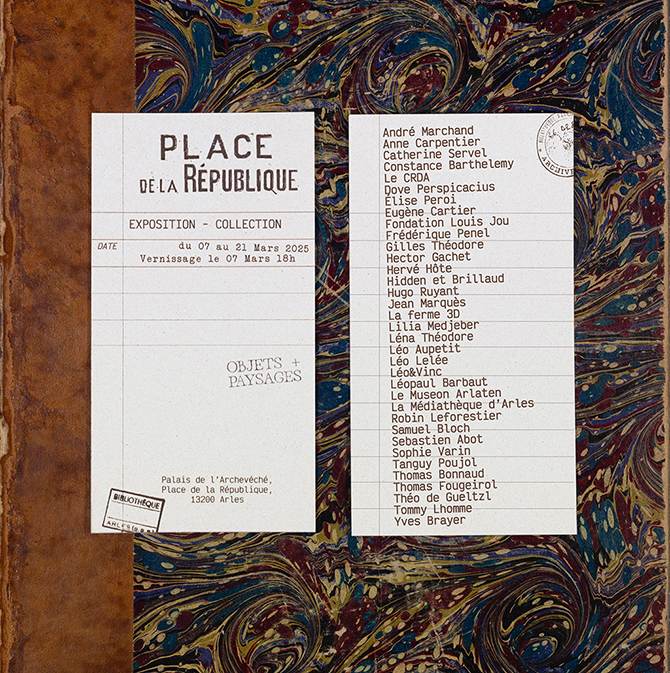 PLACE
DE LA RÉPUBLIQUE
EXPOSITION - COLLECTION
DATE
du 07 au 21 Mars 2025
Vernissage le 07 Mars 18h
OBJETS +
PAYSAGES
Palais de l'Archevêché,
Place de la République,
13200 Arles
BIBLIOTHÈQUE
ARLES
André Marchand
Anne Carpentier
Catherine Servel
Constance Barthelemy
Le CRDA
Dove Perspicacius
Élise Peroi
Eugène Cartier
Fondation Louis Jou
Frédérique Penel
Gilles Théodore
Hector Gachet
Hervé Hôte
Hidden et Brillaud
Hugo Ruyant
Jean Marquès
La ferme 3D
Lilia Medjeber
Léna Théodore
Léo Aupetit
Léo Lelée
Léo&Vinc
Léopaul Barbaut
Le Museon Arlaten
La Médiathèque d'Arles
Robin Leforestier
Samuel Bloch
Sebastien Abot
Sophie Varin
Tanguy Poujol
Thomas Bonnaud
Thomas Fougeirol
Théo de Gueltzl
Tommy Lhomme
Yves Brayer